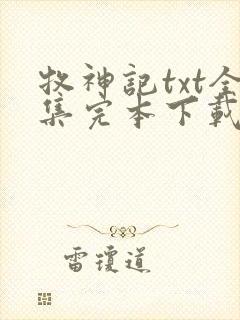 牧神記txt全
集完本下載
雷瓊道